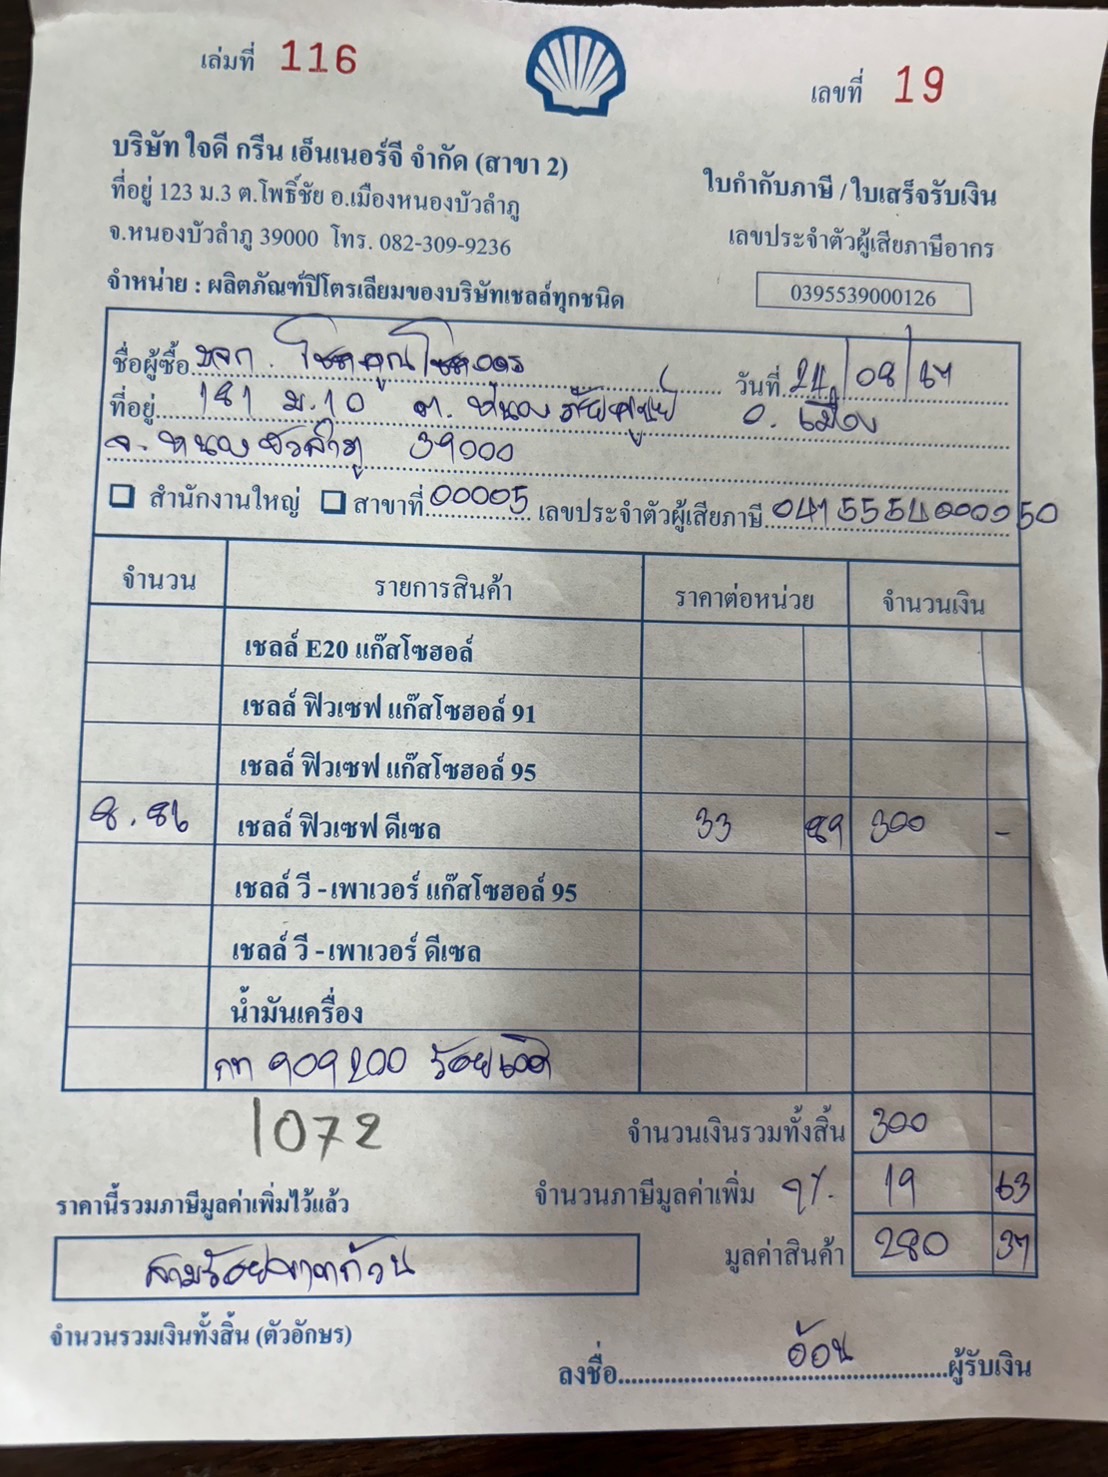 เล่มที่ 116
เลขที่ 19
บริษัท ใจดี กรีน เอ็นเนอร์จี จำกัด (สาขา 2)
ที่อยู่ 123 ม.3 ต.โพธิ์ชัย อ.เมืองหนองบัวลำภู
จ.หนองบัวลำภู 39000 โทร. 082-309-9236
จำหน่าย : ผลิตภัณฑ์ปิโตรเลียมของบริษัทเชลล์ทุกชนิด
ใบกำกับภาษี / ใบเสร็จรับเงิน
เลขประจำตัวผู้เสียภาษีอากร
0395539000126
ชื่อผู้ซื้อ หจก. โชคคูณโชคอุดร วันที่ 24/08/67
ที่อยู่ 181 ม.10 ต. หนอง อ. เมือง
จ. หนองบัวลำภู 39000
สำนักงานใหญ่ สาขาที่ 00005 เลขประจำตัวผู้เสียภาษี 0415554000050
จำนวน รายการสินค้า ราคาต่อหน่วย จำนวนเงิน
เชลล์ E20 แก๊สโซฮอล์
เชลล์ ฟิวเซฟ แก๊สโซฮอล์ 91
เชลล์ ฟิวเซฟ แก๊สโซฮอล์ 95
8.86 เชลล์ ฟิวเซฟ ดีเซล 33 89 300 -
เชลล์ วี - เพาเวอร์ แก๊สโซฮอล์ 95
เชลล์ วี - เพาเวอร์ ดีเซล
น้ำมันเครื่อง
กท ร้อยเอ็ด
1072
จำนวนเงินรวมทั้งสิ้น 300
ราคานี้รวมภาษีมูลค่าเพิ่มไว้แล้ว
จำนวนภาษีมูลค่าเพิ่ม 7%. 19 63
มูลค่าสินค้า 280 37
สามร้อยบาทถ้วน
จำนวนรวมเงินทั้งสิ้น (ตัวอักษร)
ลงชื่อ อ้อน ผู้รับเงิน